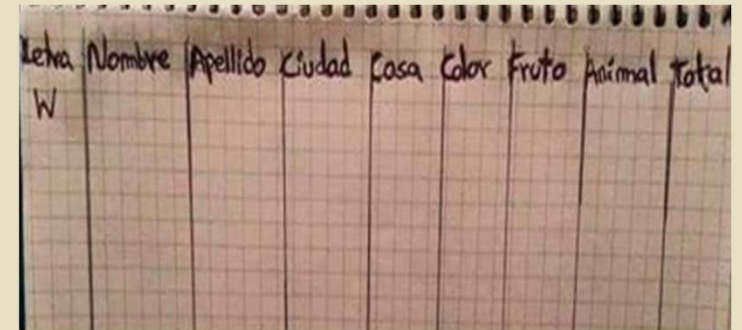 Letra Nombre Apellido Ciudad Cosa Color Fruto Animal Total
W